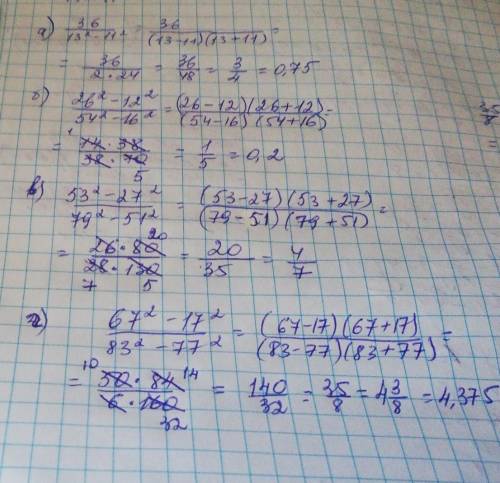 а) 36/(13² - 11²) = 36/((13-11)(13+11)) =
= 36/(2·24) = 36/48 = 3/4 = 0,75
б) (26² - 12²)/(54² - 16²) = ((26-12)(26+12))/((54-16)(54+16)) =
= (14·38)/(38·70) = 1/5 = 0,2
в) (53² - 27²)/(79² - 51²) = ((53-27)(53+27))/((79-51)(79+51)) =
= (26·80)/(28·130) = 20/35 = 4/7
г) (67² - 17²)/(83² - 77²) = ((67-17)(67+17))/((83-77)(83+77)) =
= (50·84)/(6·160) = 140/32 = 35/8 = 4 3/8 = 4,375